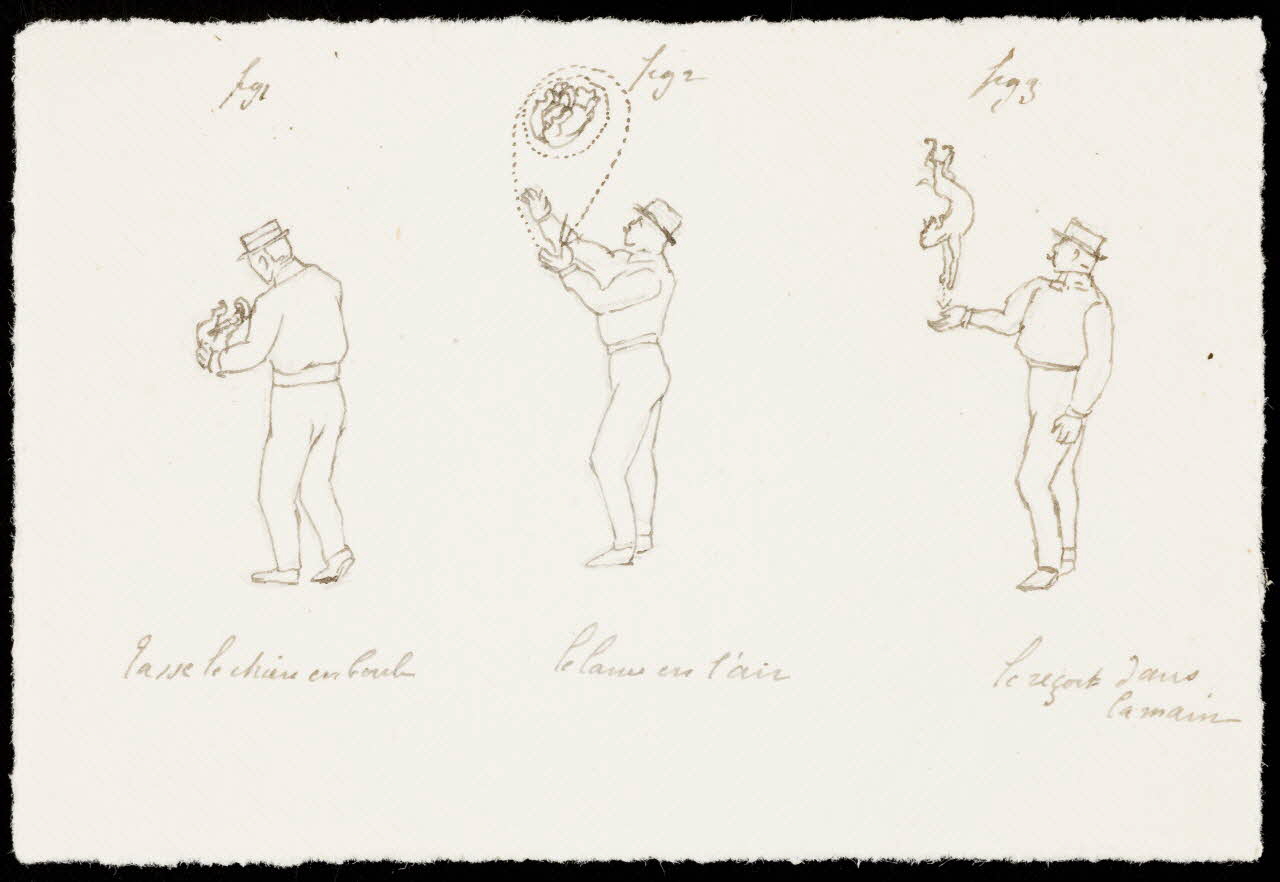 fig1
fig2
fig3
Tasse le chien en boule
le lance en l'air
le reçoit dans
la main